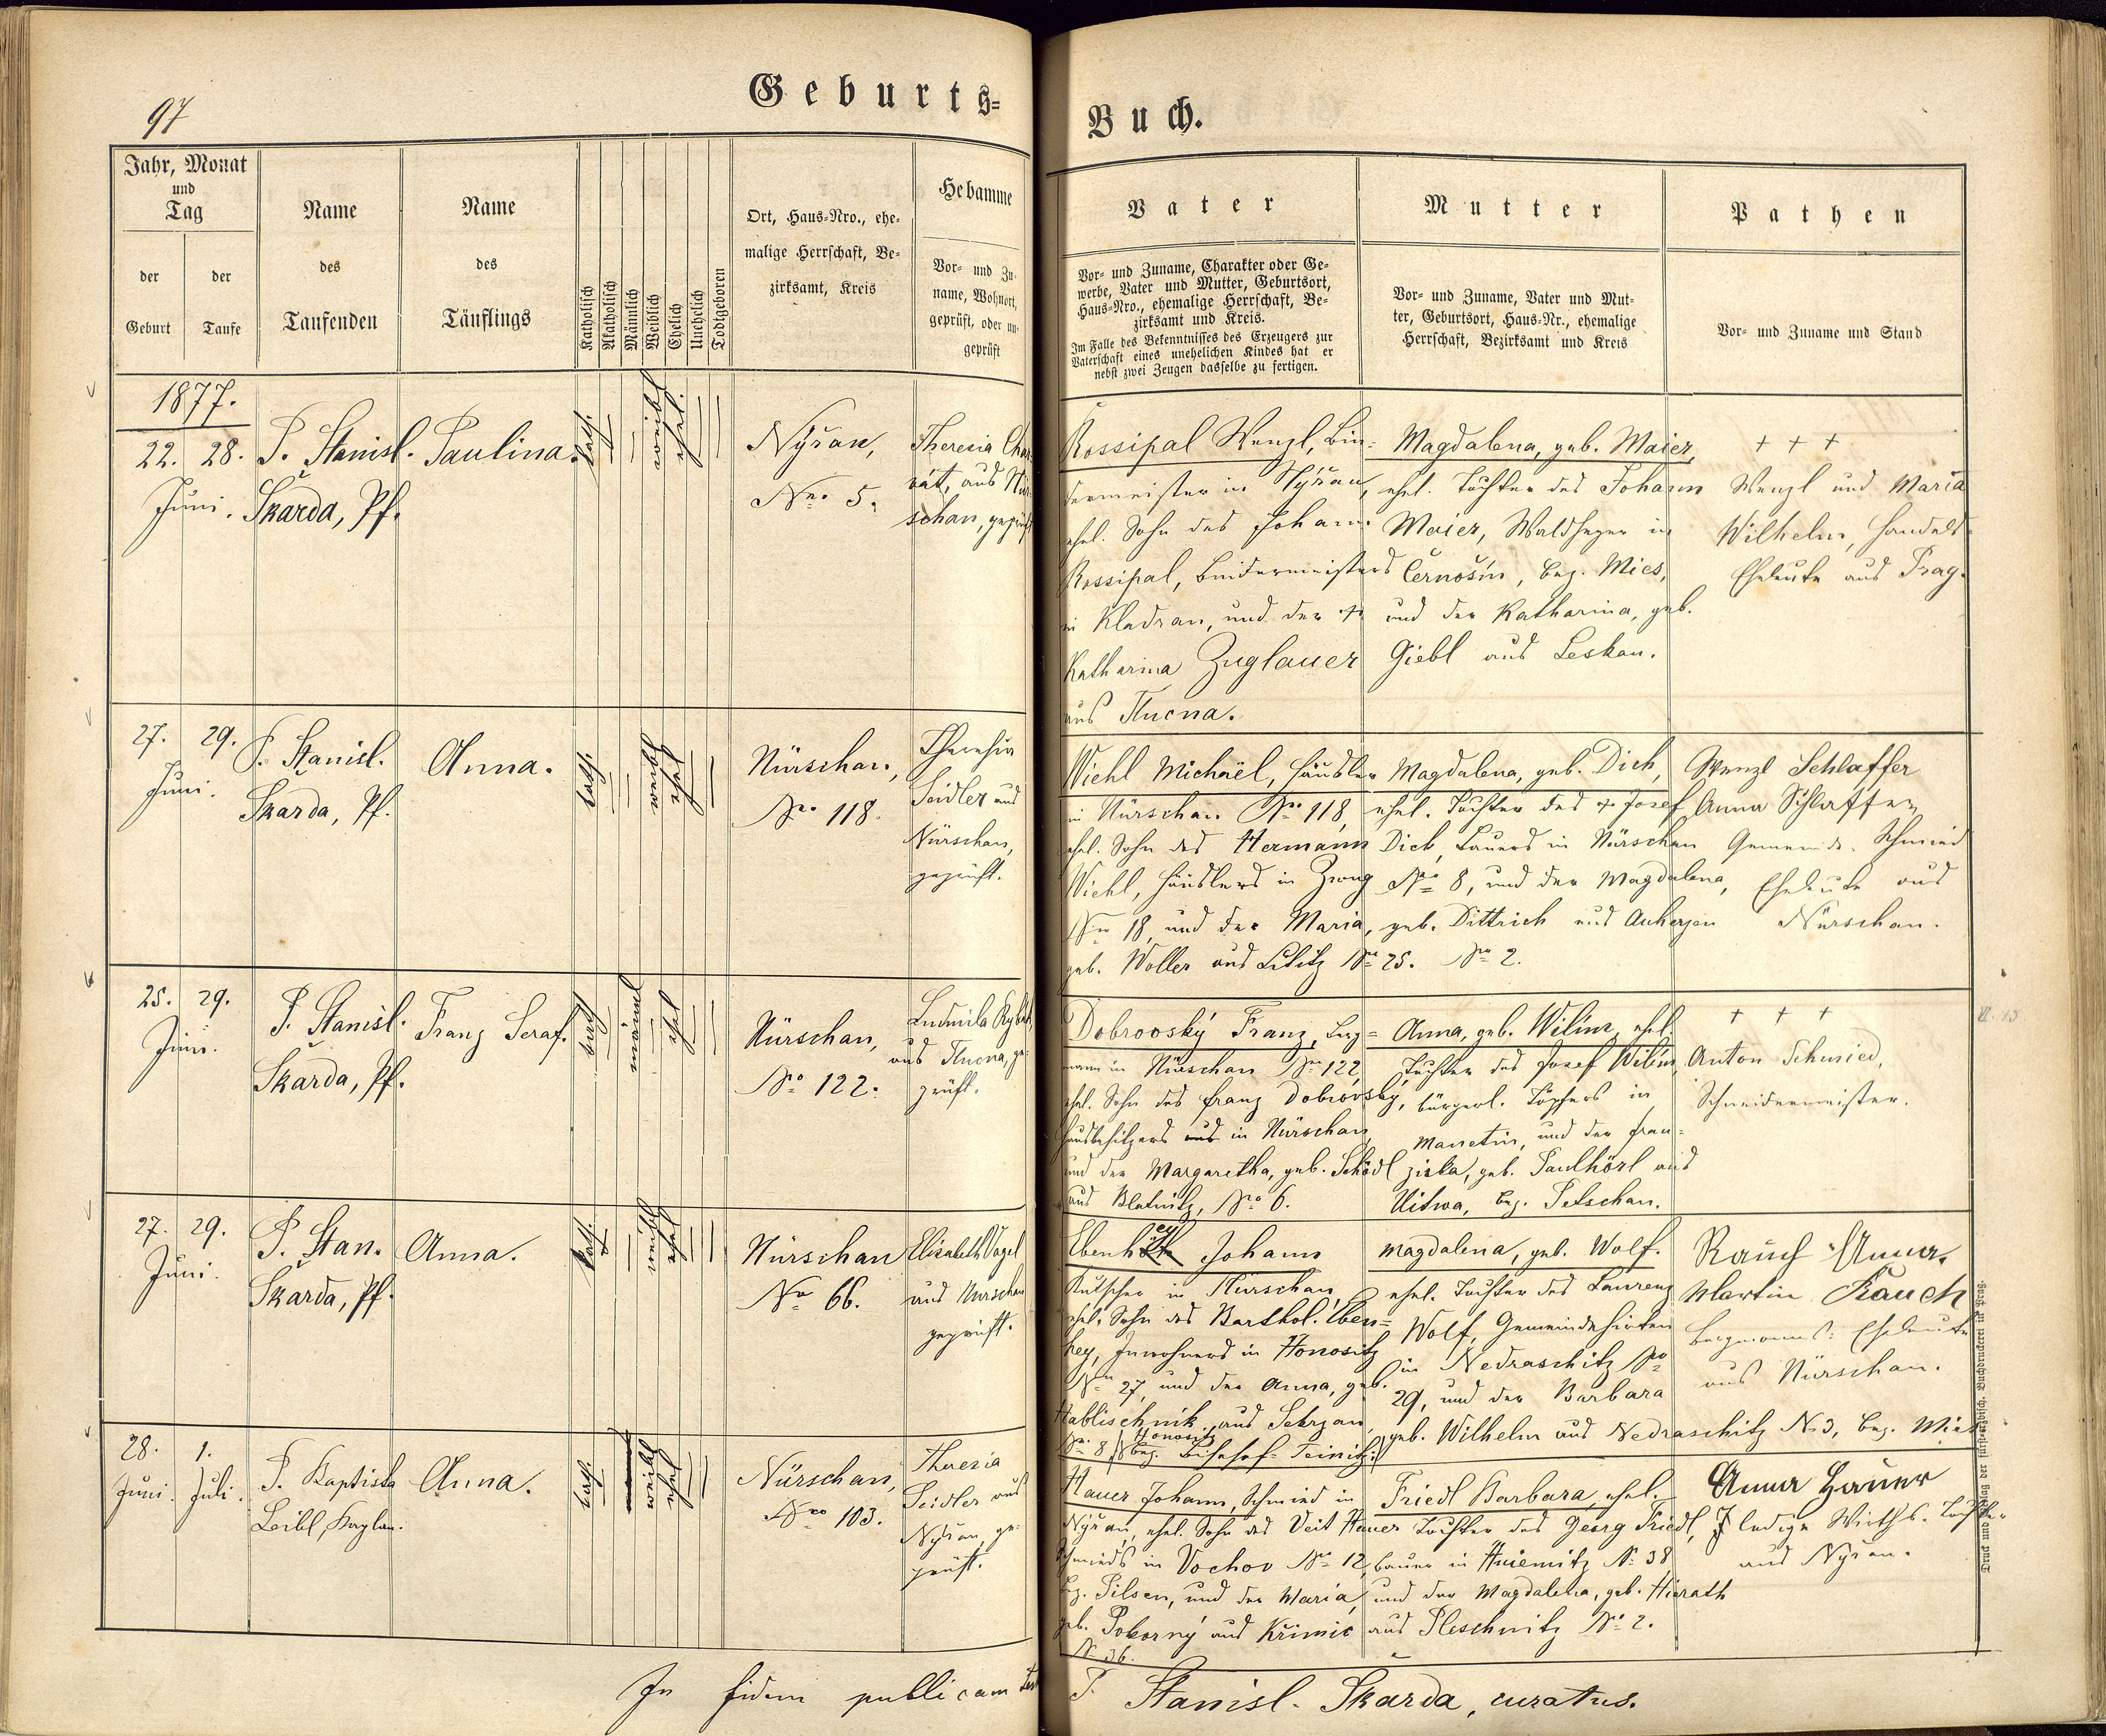 97
Geburts=
Buch.
Jahr, Monat
und
Tag
der
Geburt
der
Taufe
Name
des
Taufenden
Name
des
Täuflings
Katholisch
Akatholisch
Männlich
Weiblich
Ehelich
Unehelich
Todtgeboren
Ort, Haus=Nro., ehe=
malige Herrschaft, Be=
zirksamt, Kreis
Hebamme
Vor= und Zu=
name, Wohnort,
geprüft, oder un=
geprüft
Vater
Vor= und Zuname, Charakter oder Ge=
werbe, Vater und Mutter, Geburtsort,
Haus=Nro., ehemalige Herrschaft, Be=
zirksamt und Kreis.
Im Falle des Bekenntnisses des Erzeugers zur
Vaterschaft eines unehelichen Kindes hat er
nebst zwei Zeugen dasselbe zu fertigen.
Mutter
Vor= und Zuname, Vater und Mut=
ter, Geburtsort, Haus=Nr., ehemalige
Herrschaft, Bezirksamt und Kreis
Pathen
Vor= und Zuname und Stand
1877.
22. 28.
Juni.
P. Stanisl.
Škarda, Pf.
Paulina.
kath.
weibl
ehel.
Nyřan,
Nro 5.
Theresia Cha
rát, aus Nür
schan, geprüft
Rossipal Wenzl, Bin=
dermeister in Nyřan,
ehel. Sohn des Johann
Rossipal, Bindermeisters
in Kladrau, und der +
Katharina Zuglauer
aus Tlucna.
Magdalena, geb. Maier,
ehel. Tochter des Johann
Maier, Waldheger in
Černošin, Bez. Mies,
und der Katharina, geb.
Giebl aus Leskau.
+ + +
Wenzl und Maria
Wilhelm, Handels=
Eheleute aus Prag.
27. 29.
Juni.
P. Stanisl.
Škarda, Pf.
Anna.
kath.
weibl
ehel
Nürschan,
Nro 118.
Theresia
Seidler aus
Nürschan,
geprüft.
Wiehl Michäel, Häusler
in Nürschan Nro 118,
ehel. Sohn des Hermann
Wiehl, Häuslers in Zwug
Nro 18, und der Maria,
geb. Woller aus Lititz Nro 25.
Magdalena, geb. Dick,
ehel. Tochter des + Josef
Dick, Bauers in Nürschan
Nro 8, und der Magdalena,
geb. Dittrich aus Auherzen
Nro 2.
Wenzl Schlaffer
Anna Schlaffer,
Gemeinde-Schmied
Eheleute aus
Nürschan.
25. 29.
Juni.
P. Stanisl.
Škarda, Pf.
Franz Seraf.
kath
männl
ehel
Nürschan,
Nro 122.
Ludmila
aus Tlucna, ge=
prüft.
Dobrovský Franz, Berg=
mann in Nürschan Nro 122,
ehel. Sohn des Franz Dobrovský,
Hausbesitzers aus in Nürschan,
und der Margaretha, geb. Schödl
aus Blatnitz, Nro 6.
Anna, geb. Wilím, ehel.
Tochter des Josef Wilím,
bürgerl. Töpfers in
Manetin, und der Fran=
ziska, geb. Paulhörl aus
Uitwa, Bez. Petschau.
+ + +
Anton Schmied,
Schneidermeister.
27. 29.
Juni.
P. Stan.
Škarda, Pf.
Anna.
kath.
weibl
ehel
Nürschan
Nro 66.
Elisabeth Vogel
aus Nürschan
geprüft.
ey
Ebenh Johann
Kutscher in Nürschan,
ehel. Sohn des Barthol. Eben=
hey, Inwohners in Honositz
Nro 27, und der Anna, geb.
Hablischnik aus
Honositz
Nro 8 Bez. Bischof-Teinitz.
Magdalena, geb. Wolf.
ehel. Tochter des Laurenz
Wolf, Gemeindehirten
in Nedraschitz Nro
29, und der Barbara
geb. Wilhelm aus Nedraschitz N. 3, Bez. Mies
Rauch Anna.
Martin Rauch
Bergmanns= Eheleute
aus Nürschan.
28. 1.
Juni. Juli.
P. Baptista
Leibl, Kaplan.
Anna.
kath.
weibl
ehel
Nürschan,
Nro 103.
Theresia
Seidler aus
Nyřan, ge=
prüft.
Hauer Johann, Schmied in
Nyřan, ehel. Sohn des Veit Hauer
Schmieds in Vochov Nro 12,
Bez. Pilsen, und der Maria,
geb. Pokorný aus Křimic
No 36.
Friedl Barbara, ehel.
Tochter des Georg Friedl,
Bauer in Hniemitz No 38
und der Magdalena, geb. Hierath
aus Pleschnitz No 2.
Anna Hauer
ledige Wirths-Tochter
aus Nyřan.
In fidem publicam
P. Stanisl. Škarda, curatus.
Druck und Verlag der fürsterzbisch. Buchdruckerei in Prag.